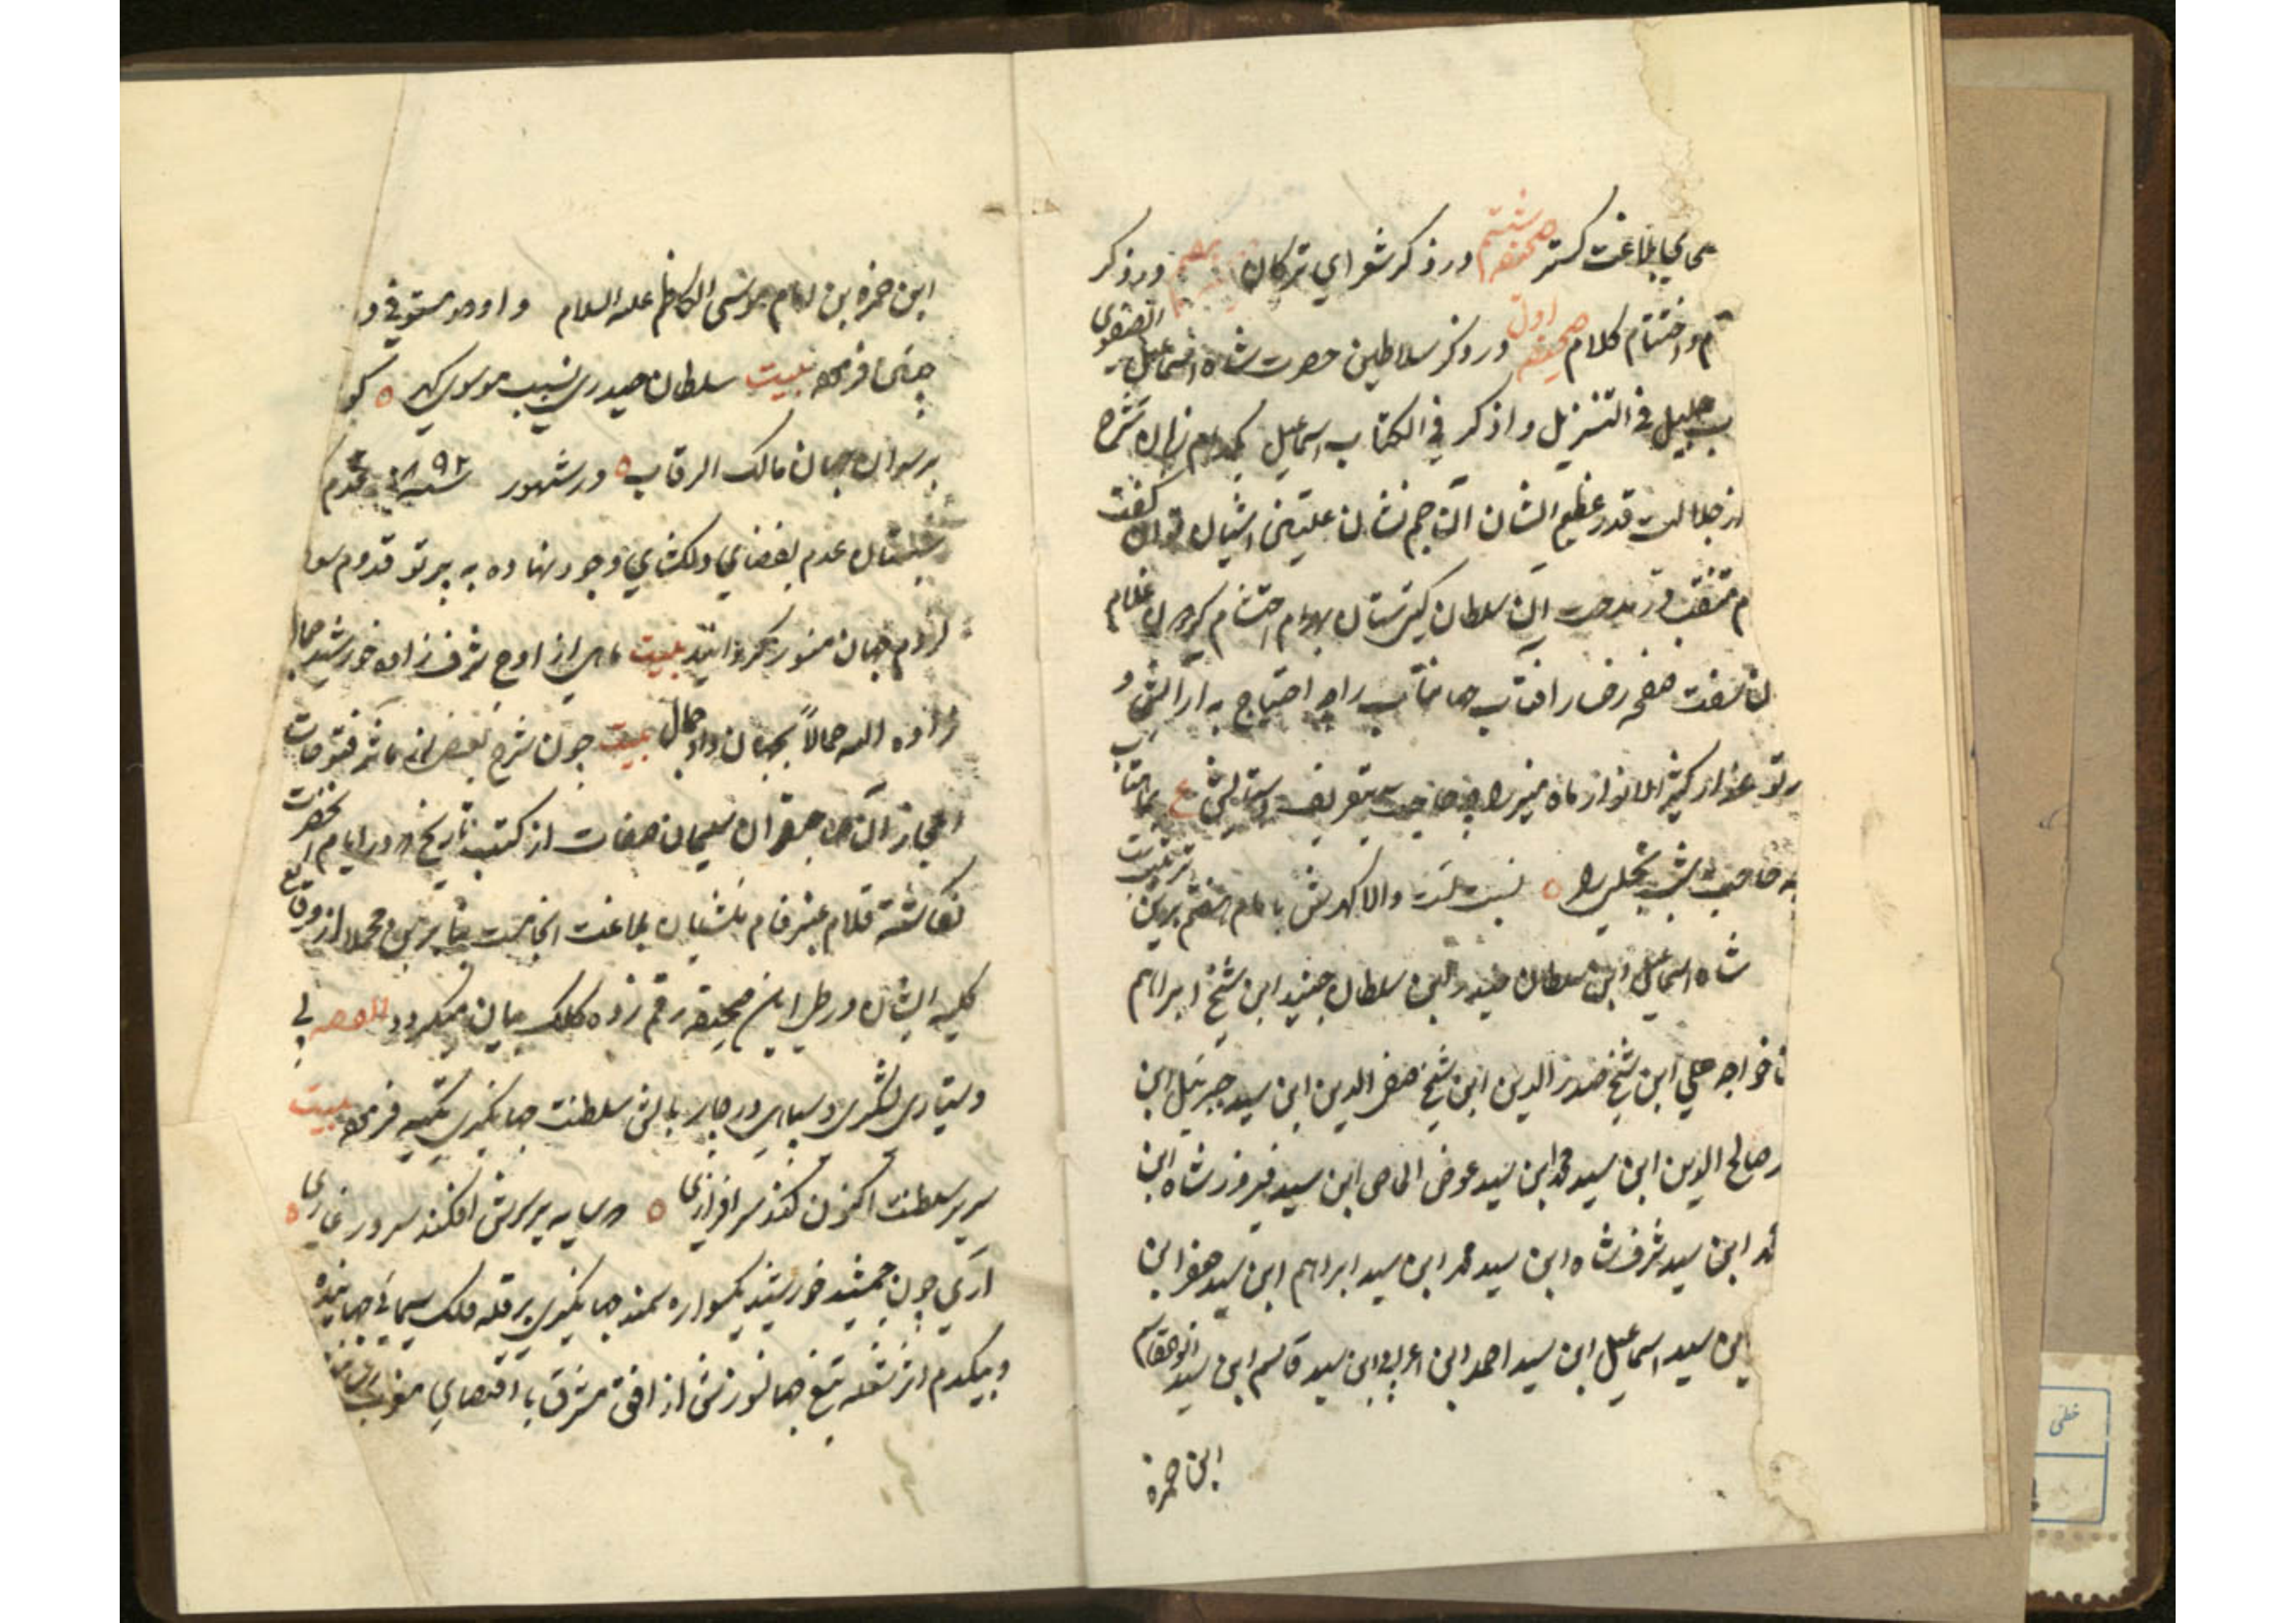 بلاغت گستر صحیفه ششم در ذکر شعرای ترکان در ذکر
و اختتام کلام صحیفه اول در ذکر سلاطین حضرت شاه اسمعیل الصفوی
جلیل فی التنزیل و اذکر فی الکتاب اسماعیل کدام زبان شرح
از جلالت قدر عظیم الشان آن جم نشان علیین اشیان توان گفت
م منقبت و مدحت آن سلطان گیتی ستان بهرام احتشام غلام
صفحه رخسار افتاب جهانتاب را چه احتیاج به آرایش و
پرتو عذار کثیر الانوار ماه منیر را چه حاجت بتعریف و ستایش ع بماهتاب
چه حاجت شب تجلی را ٥ نسبت والا گهرش بامام هفتم بدین ترتیبست
شاه اسماعیل ابن سلطان حیدر ابن سلطان جنید ابن شیخ ابراهیم
خواجه علی ابن شیخ صدر الدین ابن شیخ صفی الدین ابن سید جبرئیل ابن
صالح الدین ابن سید محمد ابن سید عوض الخاص ابن سید فیروز شاه ابن
ابن سید شرف شاه ابن سید محمد ابن سید ابراهیم ابن سید جعفر ابن
ابن سید اسماعیل ابن سید احمد ابن اعرابی ابن سید قاسم ابن سید ابو القاسم
ابن حمزه
ابن حمزه بن امام موسی الکاظم علیه السلام و اوحد مستوفی در
چنین فرموده بیت سلطان حیدری نسب موسوی گهر ٥ کو
بر سران جهان مالک الرقاب ٥ در شهور سنه ٨٩٢ قدم
شبستان عدم بفضای دلگشای وجود نهاده به پرتو قدوم
مردم جهان منور گردانید بیت ماهی از اوج شرف زاده خورشید جمال
زاده الله جمالاً بجهان داد جمال بیت چون شرح بعضی از مآثر فتوحات
اعجاز آن صاحبقران سلیمان صفات از کتب تاریخ که در ایام آنحضرت
نگاشته قلام عنبر فام منشیان بلاغت انجامست بنابرین مجملا از وقایع
کلیه ایشان در طی این صحیفه رقم زده کلک بیان میگردد القصه بی
دستیاری لشکری و سپاهی در چار بالش سلطنت جهانگیری تکیه فرموده بیت
سریر سلطنت اکنون کند سرافرازی ٥ که سایه بر سرش افکند سرور غازی ٥
آری چون جمشید خورشید یکسواره سمند جهانگیری بر قله فلک سیمابی جهانیده
و بیکدم از شعله تیغ جهانسوزش از افق مشرق با اقصای مغرب
خطی